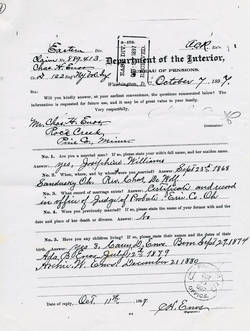 Eastern Div.
Chas H. Enos
Department of the Interior,
BUREAU OF PENSIONS,
Washington, D. C., October 7, 1897.
Will you kindly answer, at your earliest convenience, the questions enumerated below? The
information is requested for future use, and it may be of great value to your family.
Very respectfully,
Mr. Chas H. Enos
Rock Creek,
Commissioner.
No. 1. Are you a married man? If so, please state your wife's full name, and her maiden name.
Yes, Josephine Williams
No. 2. When, where, and by whom were you married? Sept 23rd 1868
Sandusky Oh. Rev. Chas
No. 3. What record of marriage exists? Certificate and record
in office of Judge of Probate Erie Co. Oh
No. 4. Were you previously married? If so, please state the name of your former wife and the
date and place of her death or divorce. No
No. 5. Have you any children living? If so, please state their names and the dates of their
birth. Yes 3, D. Enos Born Sept 27, 1874
Ada B. Enos July 12th 1879
Archie W. Enos December 21 1880
Date of reply, Oct 11th 1897.
C H. Enos